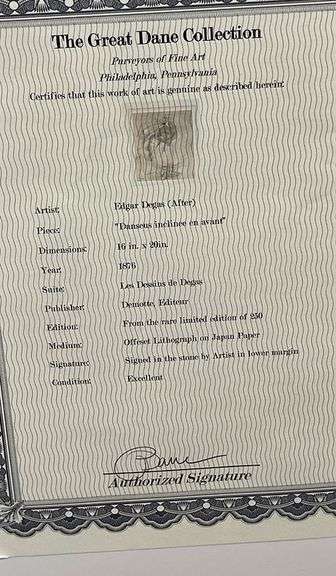 The Great Dane Collection
Purveyors of Fine Art
Philadelphia, Pennsylvania
Certifies that this work of art is genuine as described herein:
Artist: Edgar Degas (After)
Piece: "Danseus inclinee en avant"
Dimensions: 16 in. x 20in.
Year: 1876
Suite: Les Dessins de Degas
Publisher: Demotte, Editeur
Edition: From the rare limited edition of 250
Medium: Offeset Lithograph on Japan Paper
Signature: Signed in the stone by Artist in lower margin
Condition: Excellent
Authorized Signature